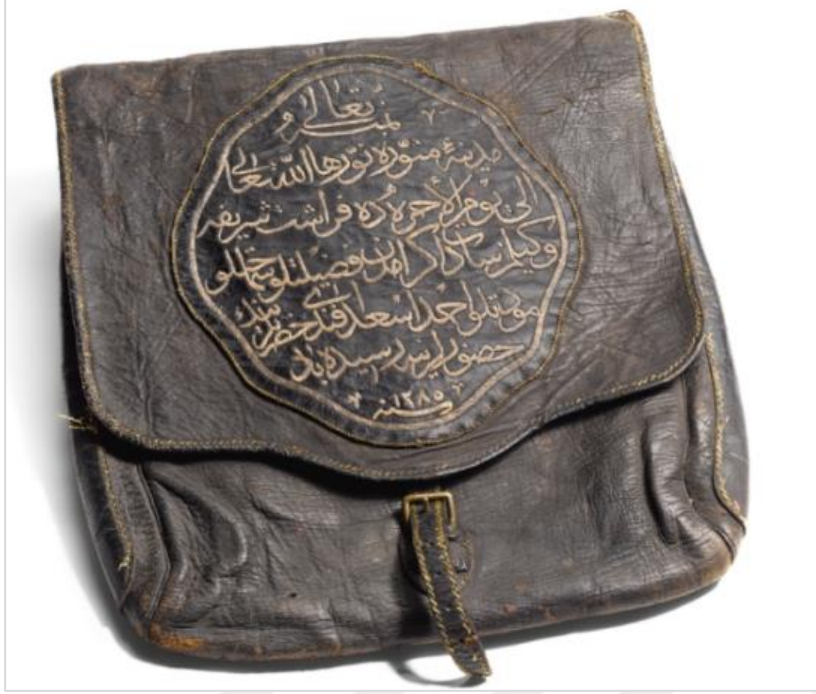 بمنه تعالى
مدينۀ منوره نورها الله تعالى
الى يوم الاخره ده فراشت شريفه
وكيلى سادات كرامدن فضيلتلو سماحتلو
مودتلو احمد اسعد افندى حضرتلرينك
حضورلرينه رسيده باد
سنه ١٢٨٥